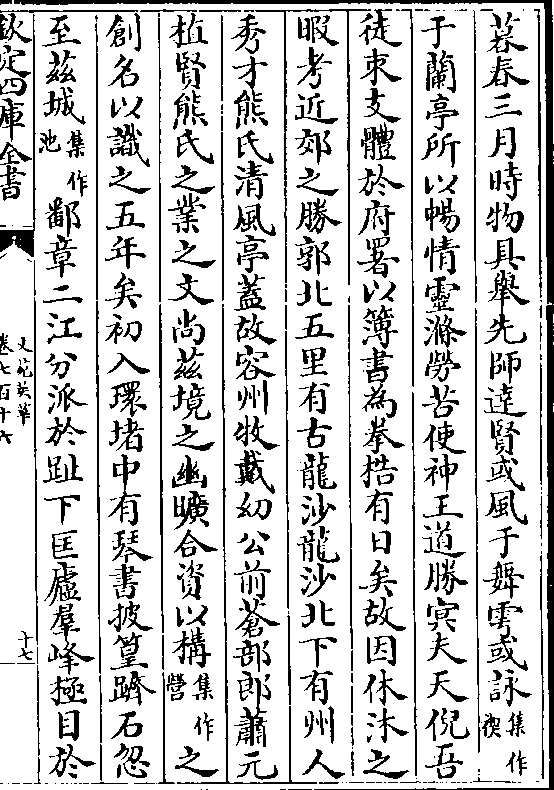 暮春三月時物具舉先師達賢或風于舞雩或詠集作禊
于蘭亭所以暢情靈滌勞苦使神王道勝冥夫天倪吾
徒束支體於府署以簿書為拳梏有日矣故因休沐之
暇考近郊之勝郭北五里有古龍沙龍沙北下有州人
秀才熊氏清風亭蓋故容州牧戴幼公前蒼部郎蕭元
植賢熊氏之業之文尚茲境之幽曠合資以構集作營之
創名以識之五年矣初入環堵中有琴書披篁躋石忽
至茲城集作池鄱章二江分派於趾下匡廬羣峰極目於
欽定四庫全書
文苑英華
卷七百十六
十七